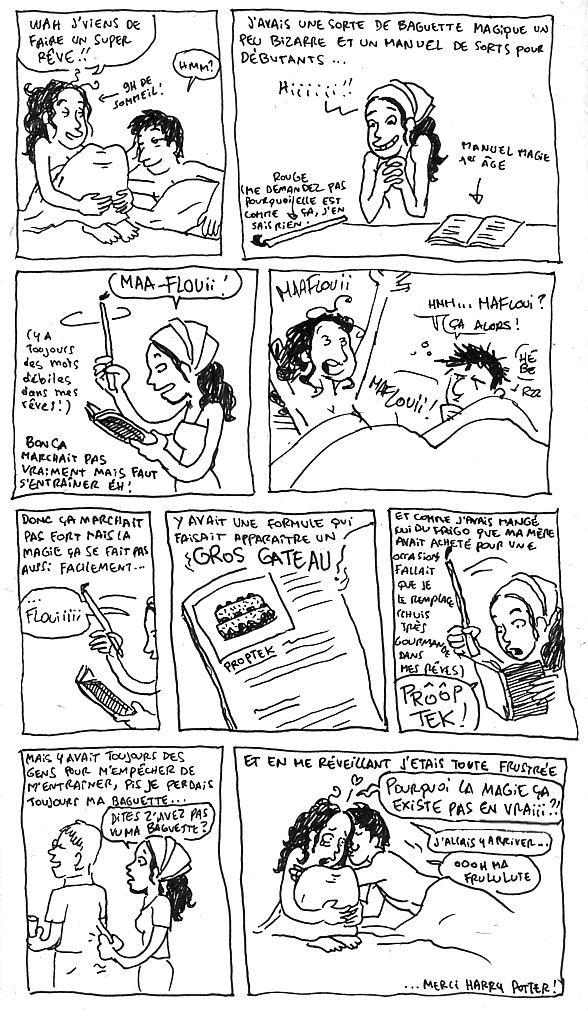 WAH J'VIENS DE
FAIRE UN SUPER
RÊVE!!
HMM?
9H DE
SOMMEIL!
J'AVAIS UNE SORTE DE BAGUETTE MAGIQUE UN
PEU BIZARRE ET UN MANUEL DE SORTS POUR
DÉBUTANTS ...
Hiiiiii!!
ROUGE
(ME DEMANDEZ PAS
POURQUOI ELLE EST
COMME ÇA, J'EN
SAIS RIEN!
MANUEL MAGIE
1ER ÂGE
MAA-FLOUii!
(Y A
TOUJOURS
DES MOTS
DÉBILES
DANS MES
RÊVES!)
BON ÇA
MARCHAIT PAS
VRAIMENT MAIS FAUT
S'ENTRAÎNER EH!
MAAFLOUii
HMM... MAFLOUI?
ÇA ALORS!
HÉ
BÉ
RZZ
MAFLOUii!
DONC ÇA MARCHAIT
PAS FORT MAIS LA
MAGIE ÇA SE FAIT PAS
AUSSI FACILEMENT...
...
FLOUiiiii
Y AVAIT UNE FORMULE QUI
FAISAIT APPARAÎTRE UN
GROS GATEAU!
PROPTEK
ET COMME J'AVAIS MANGÉ
CUI DU FRIGO QUE MA MÈRE
AVAIT ACHETÉ POUR UNE
OCCASION
FALLAIT
QUE JE
LE REMPLACE
(CHUIS
TRÈS
GOURMANDE
DANS
MES RÊVES)
PRÔÔP
TEK!
MAIS Y AVAIT TOUJOURS DES
GENS POUR M'EMPÊCHER DE
M'ENTRAÎNER, PIS JE PERDAIS
TOUJOURS MA BAGUETTE...
DITES Z'AVEZ PAS
VU MA BAGUETTE?
ET EN ME RÉVEILLANT J'ETAIS TOUTE FRUSTRÉE
POURQUOI LA MAGIE ÇA
EXISTE PAS EN VRAiii?!
J'ALLAIS Y ARRIVER...
OOOH MA
FRULULUTE
...MERCI HARRY POTTER!